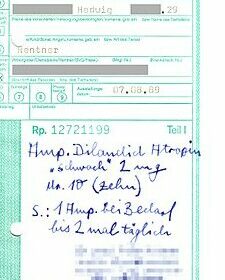 Hedwig .29
Rentner
07.08.89
Rp. 12721199 Teil I
Amp. Dilaudid Atropin
„schwach" 2 mg
No. 10 (zehn)
S.: 1 Amp. bei Bedarf
bis 2 mal täglich